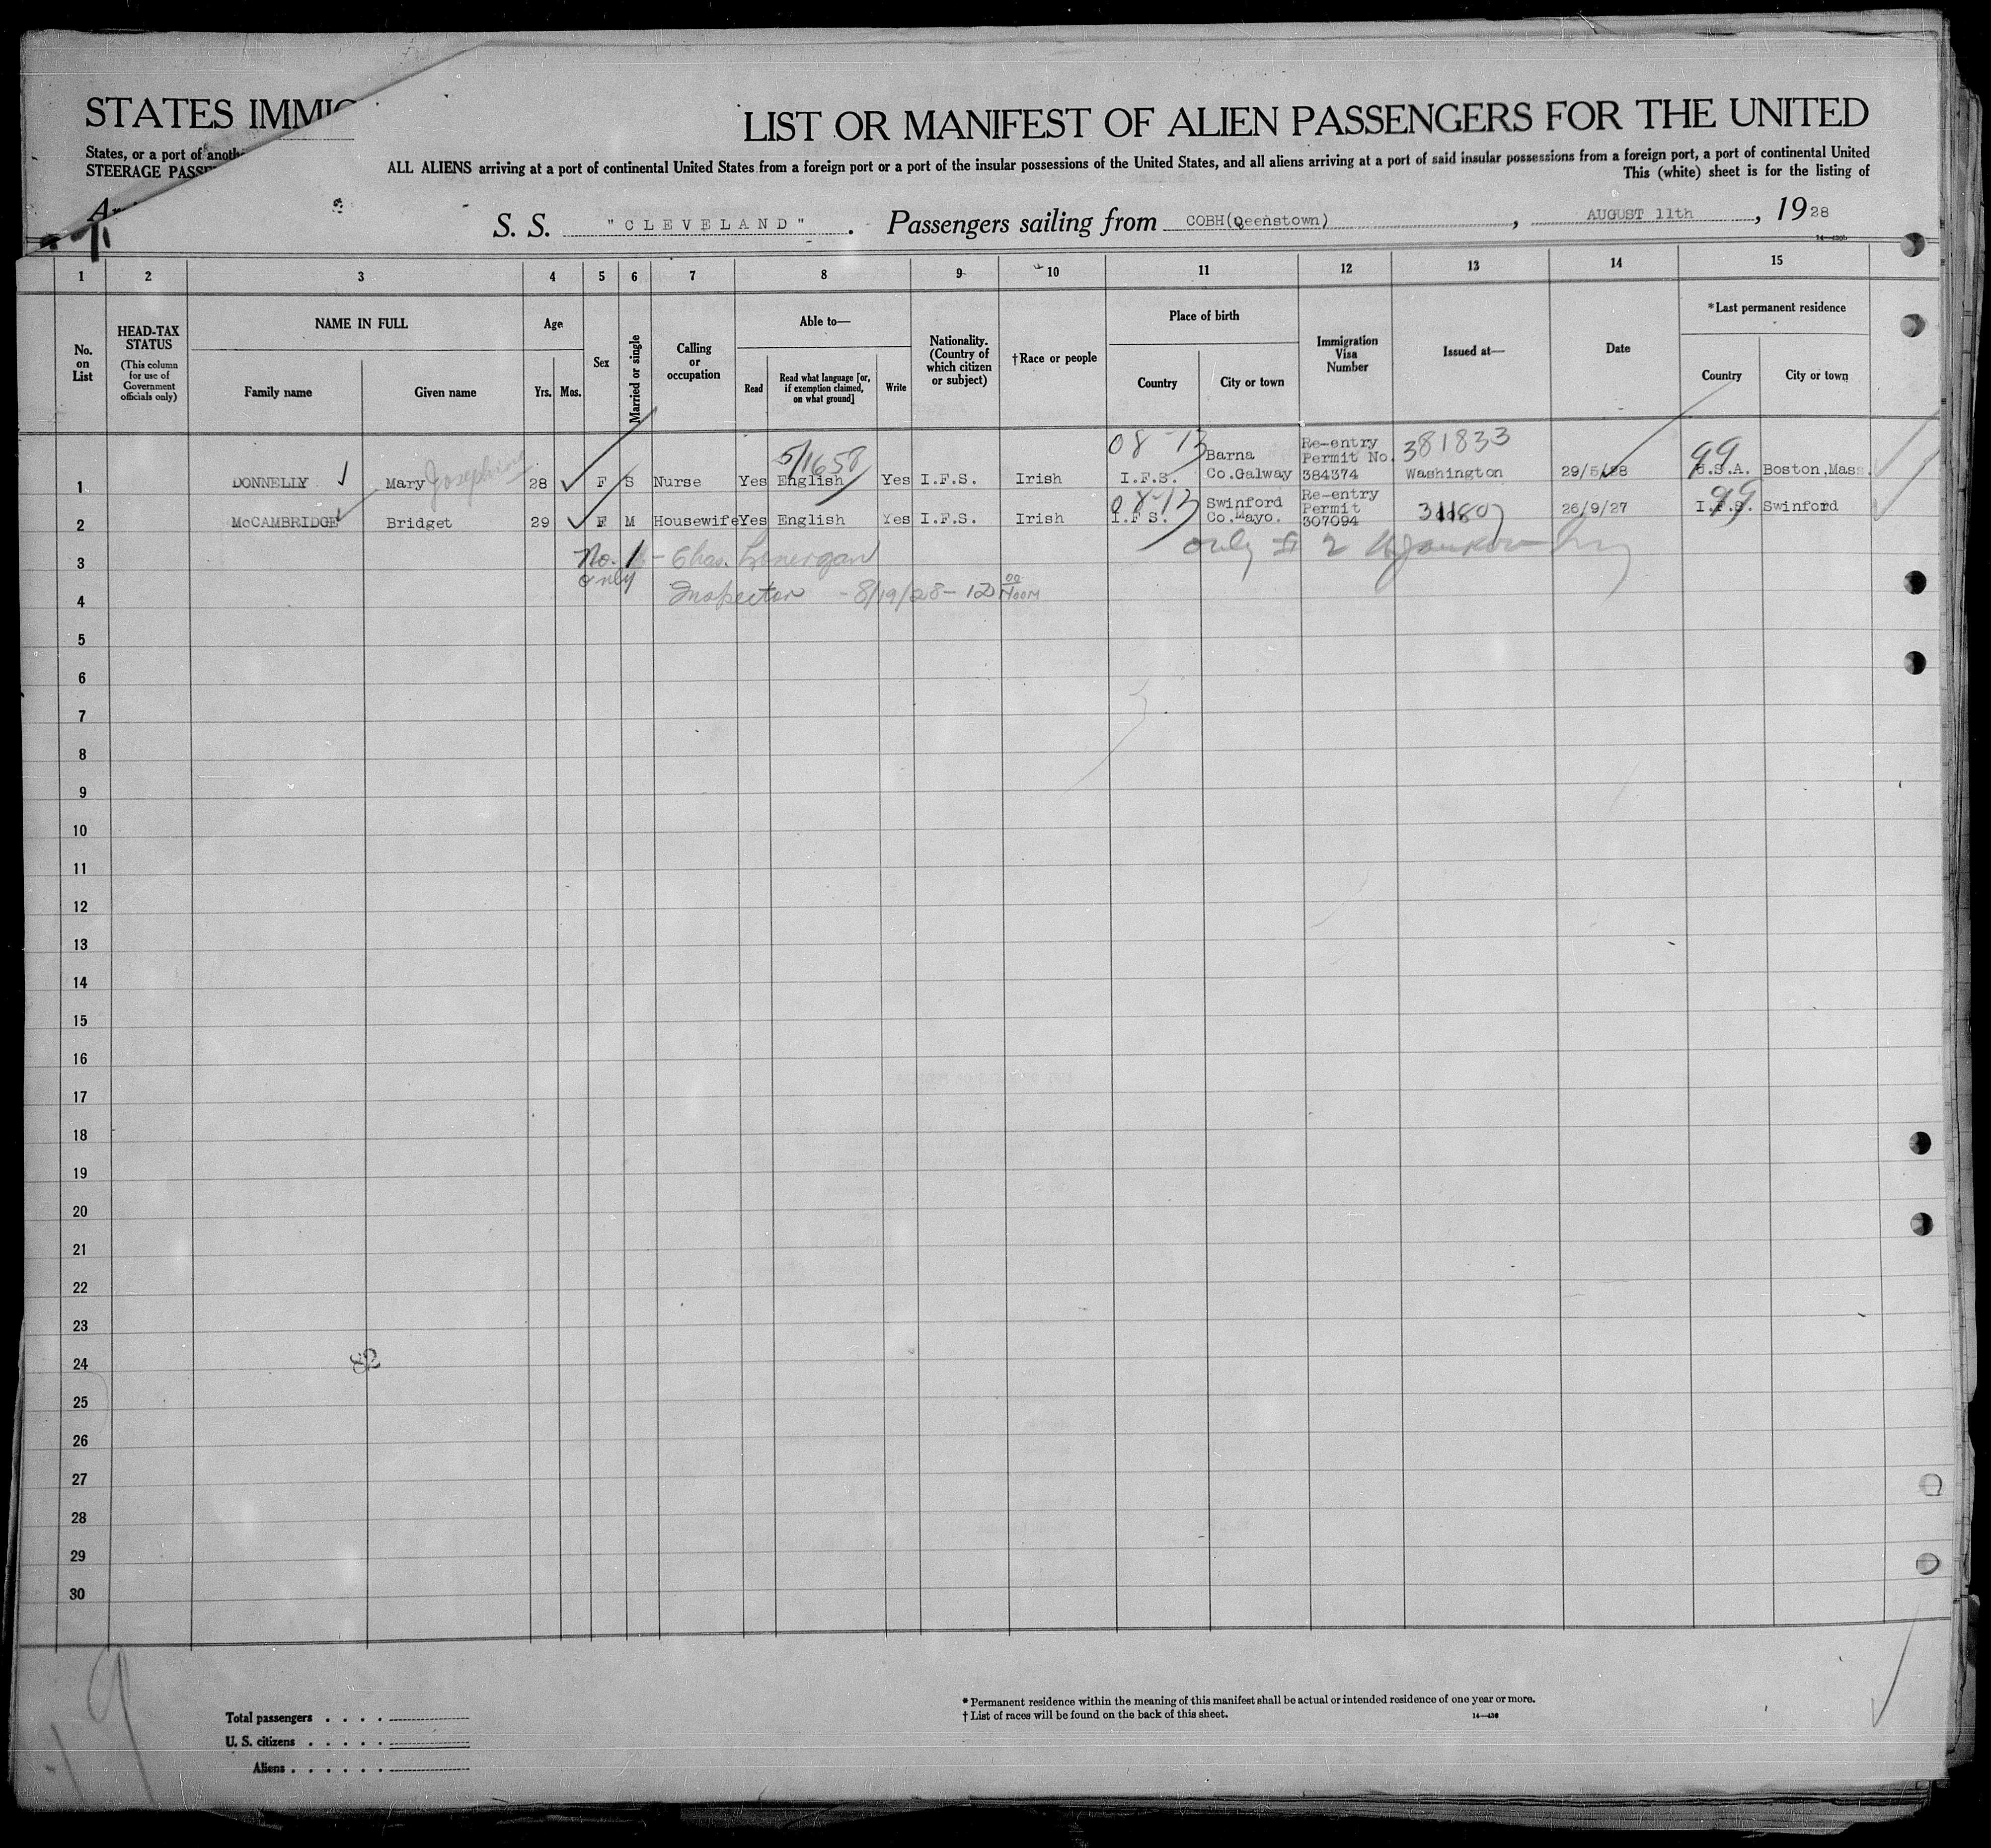 STATES IMMIG
LIST OR MANIFEST OF ALIEN PASSENGERS FOR THE UNITED
States, or a port of anoth
STEERAGE PASSE
ALL ALIENS arriving at a port of continental United States from a foreign port or a port of the insular possessions of the United States, and all aliens arriving at a port of said insular possessions from a foreign port, a port of continental United
This (white) sheet is for the listing of
S. S. "CLEVELAND". Passengers sailing from COBH(Qeenstown), AUGUST 11th, 1928
1 2 3 4 5 6 7 8 9 10 11 12 13 14 15
No. on List
HEAD-TAX STATUS
(This column for use of Government officials only)
NAME IN FULL
Family name
Given name
Age
Yrs. Mos.
Sex
Married or single
Calling or occupation
Able to—
Read
Read what language [or, if exemption claimed, on what ground]
Write
Nationality. (Country of which citizen or subject)
†Race or people
Place of birth
Country
City or town
Immigration Visa Number
Issued at—
Date
*Last permanent residence
Country
City or town
1 DONNELLY Mary Josephine 28 F S Nurse Yes English 5/1658 Yes I.F.S. Irish 08-13 I.F.S. Barna Co.Galway Re-entry Permit No. 384374 381833 Washington 29/5/28 99 U.S.A. Boston.Mass.
2 McCAMBRIDGE Bridget 29 F M Housewife Yes English Yes I.F.S. Irish 08-13 I.F S. Swinford Co.Mayo. Re-entry Permit 307094 311807 26/9/27 99 I.F.S. Swinford
3 No. 1 only - Chas. Lonergan only # 2
4 Inspector - 8/19/28 - 12 00 NOON
5
6
7
8
9
10
11
12
13
14
15
16
17
18
19
20
21
22
23
24
82
25
26
27
28
29
30
19
Total passengers . . . .
U. S. citizens . . . . .
Aliens . . . . . .
* Permanent residence within the meaning of this manifest shall be actual or intended residence of one year or more.
† List of races will be found on the back of this sheet.
14—430